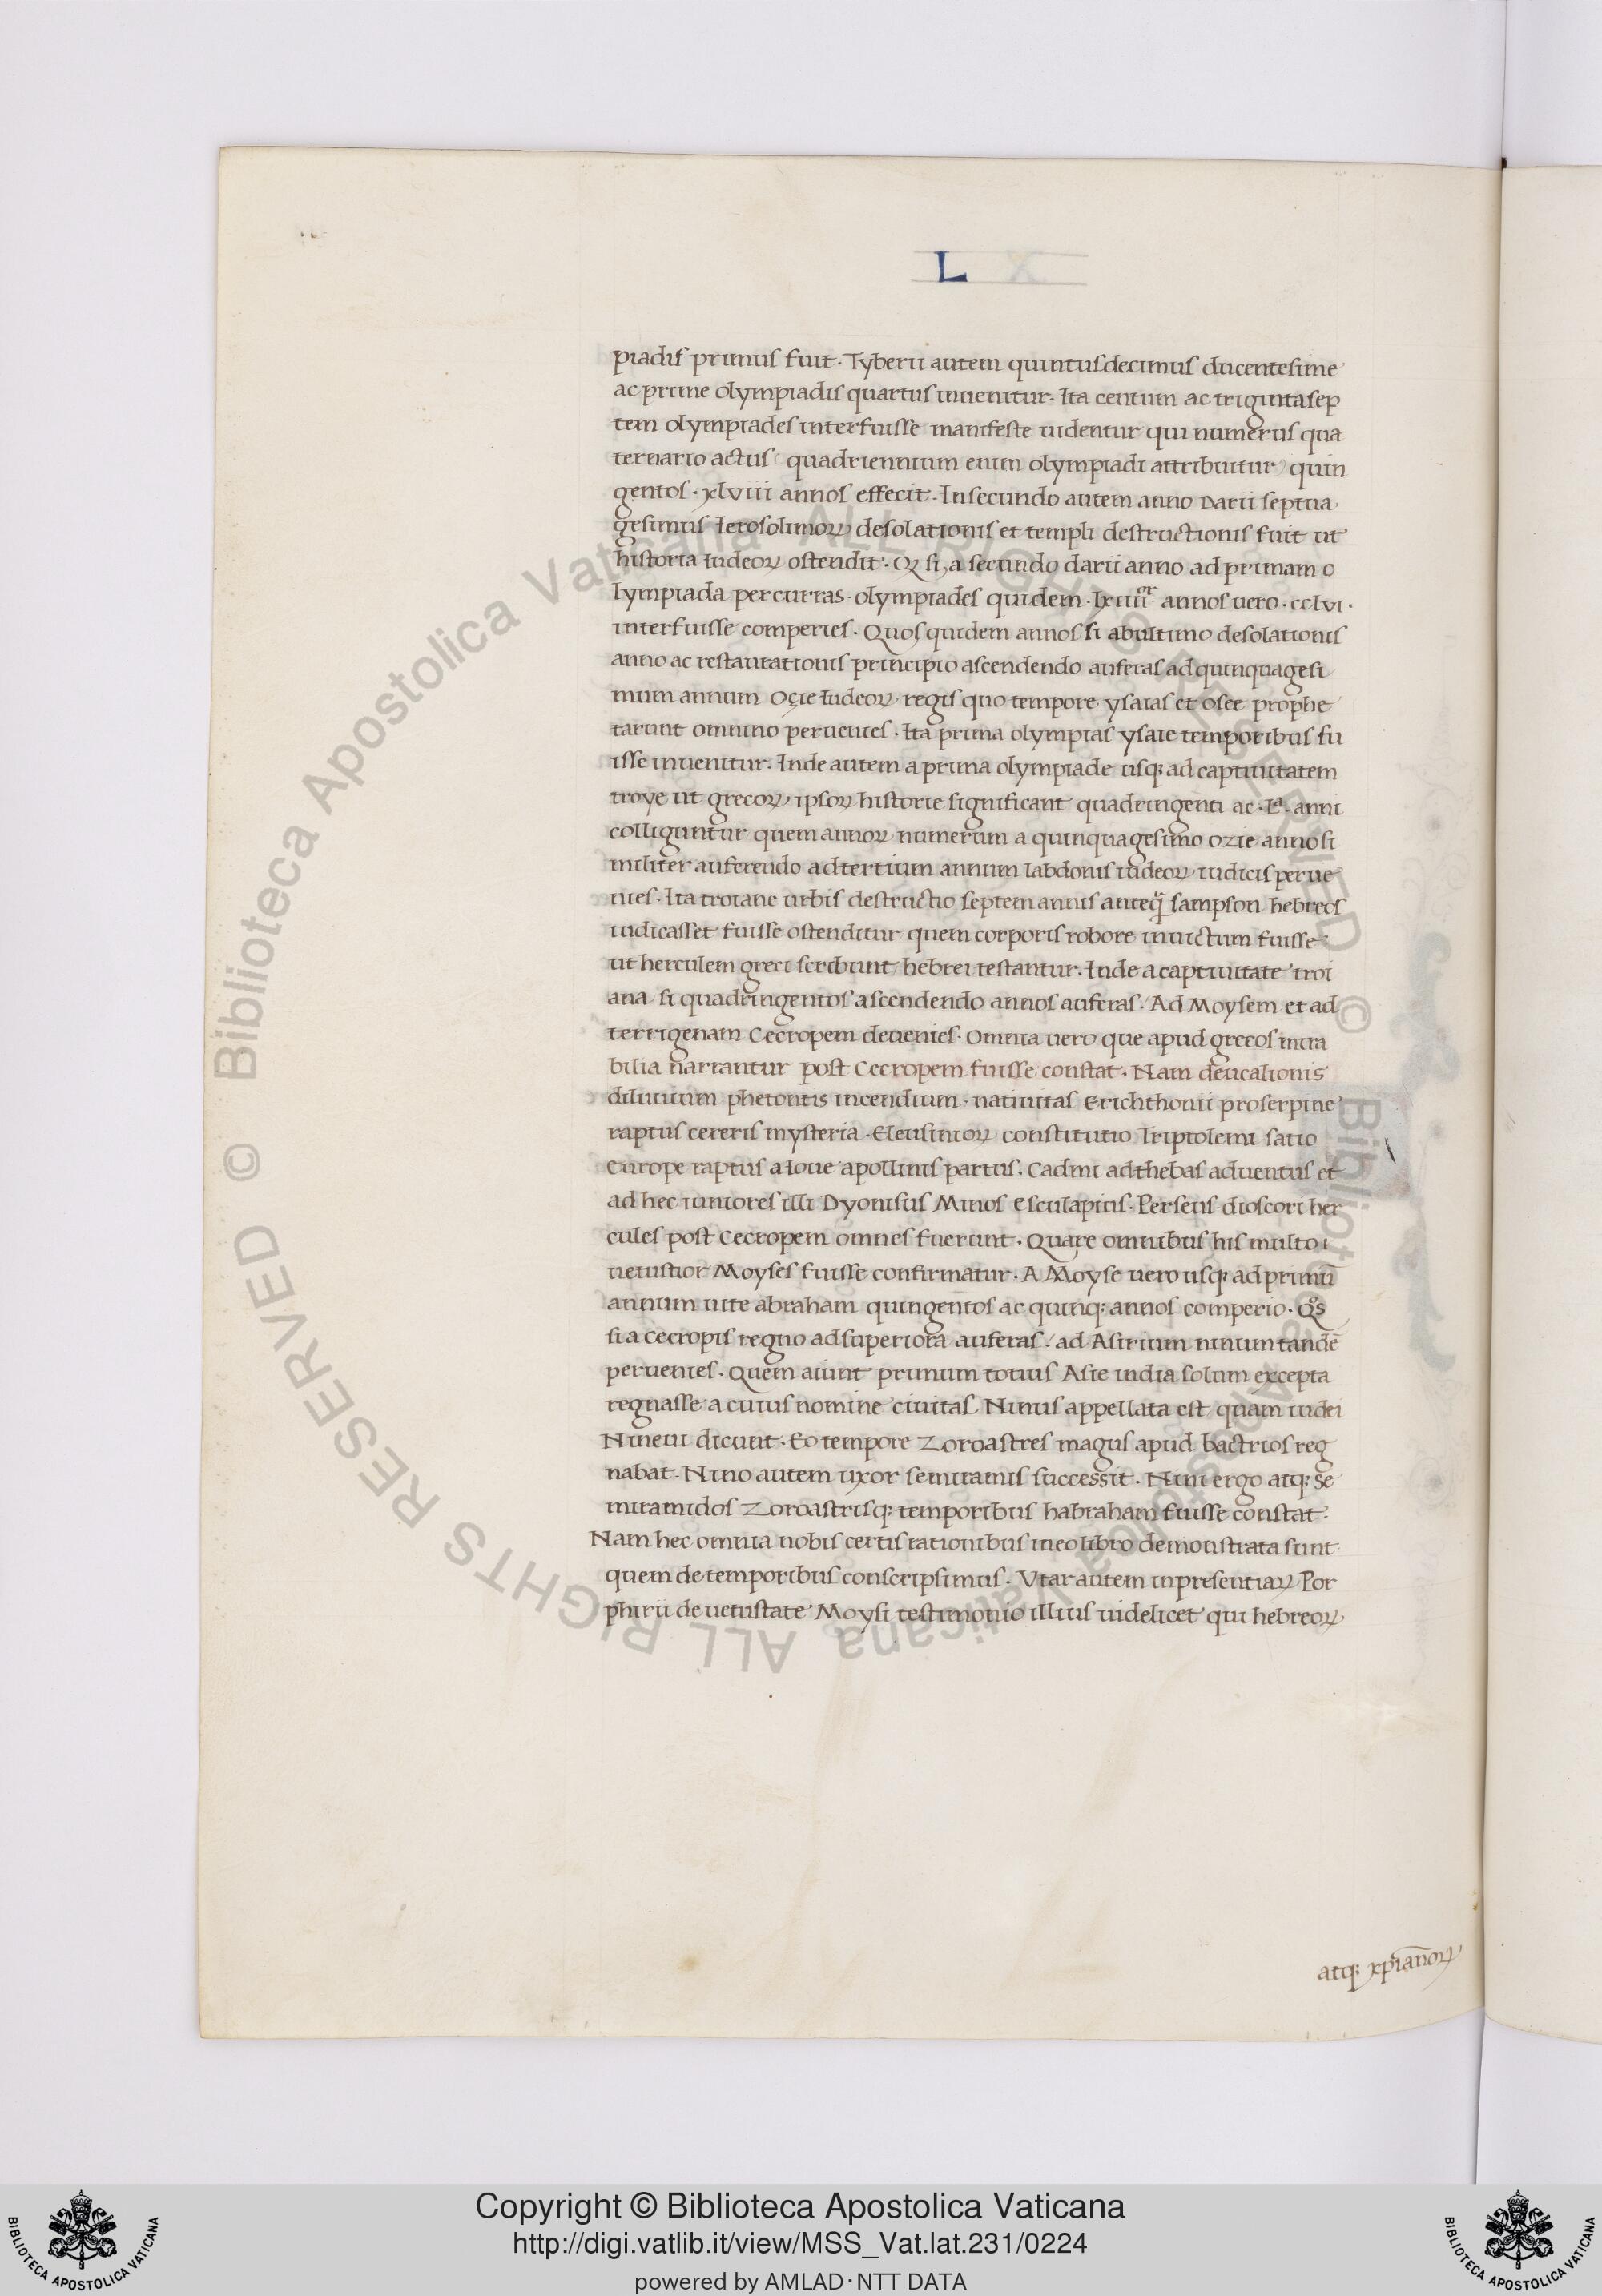 L X
piadis primus fuit. Tyberii autem quintusdecimus ducentesime
ac prime olympiadis quartus inuenitur. Ita centum ac trigintasep
tem olympiades interfuisse manifeste uidentur qui numerus qua
ternario actus (quadriennium enim olympiadi attribuitur) quin
gentos. xlviii annos effecit. In secundo autem anno Darii septua
gesimus Ierosolimoꝝ desolationis et templi destructionis fuit ut
historia Iudeoꝝ ostendit. Ꝙ si a secundo darii anno ad primam o
lympiada percurras. olympiades quidem. lxiiii annos uero. cclvi.
interfuisse comperies. Quos quidem annos si ab ultimo desolationis
anno ac restaurationis principio ascendendo auferas ad quinquagesi
mum annum Oçie Iudeoꝝ regis quo tempore ysaias et osee prophe
tarunt omnino peruenies. Ita prima olympias ysaie temporibus fu
isse inuenitur. Inde autem a prima olympiade usq; ad captiuitatem
troye ut grecoꝝ ipsoꝝ historie significant quadringenti ac. anni
colliguntur quem annoꝝ numerum a quinquagesimo ozie anno si
militer auferendo ad tertium annum labdonis iudeoꝝ iudicis perue
nies. Ita troiane urbis destructio septem annis anteq̃ sampson hebreos
iudicasset fuisse ostenditur quem corporis robore inuictum fuisse
ut herculem greci scribunt hebrei testantur. Inde a captiuitate troi
ana si quadringentos ascendendo annos auferas. Ad Moysem et ad
terrigenam Cecropem deuenies. Omnia uero que apud grecos mira
bilia narrantur post Cecropem fuisse constat. Nam deucalionis
diluuium phetontis incendium. natiuitas Erichthonii proserpine
raptus cereris mysteria. Eleusinioꝝ constitutio Triptolemi satio
Europe raptus a Ioue apollinis partus. Cadmi ad thebas aduentus et
ad hec iuniores illi Dyonisus Minos Esculapius. Perseus dioscori her
cules post Cecropem omnes fuerunt. Quare omnibus his multo
uetustior Moyses fuisse confirmatur. A Moyse uero usq; ad primū
annum uite abraham quingentos ac quinq; annos comperio. Qͦs
si a cecropis regno ad superiora auferas. ad Asirium ninum tandē
peruenies. Quem aiunt primum totius Asie india solum excepta
regnasse a cuius nomine ciuitas Ninus appellata est quam iudei
Nineui dicunt. Eo tempore Zoroastres magus apud bactrios reg
nabat. Nino autem uxor semiramis successit. Nini ergo atq; Se
miramidos Zoroastrisq; temporibus habraham fuisse constat.
Nam hec omnia nobis certis rationibus in eo libro demonstrata sunt
quem de temporibus conscripsimus. Vtar autem in presentiaꝝ Por
phirii de uetustate Moysi testimonio illius uidelicet qui hebreoꝝ
atq; xp̄ianoꝝ
© Biblioteca Apostolica Vaticana ALL RIGHTS RESERVED
© Biblioteca Apostolica Vaticana ALL RIGHTS RESERVED
BIBLIOTECA APOSTOLICA VATICANA
Copyright © Biblioteca Apostolica Vaticana
http://digi.vatlib.it/view/MSS_Vat.lat.231/0224
powered by AMLAD·NTT DATA
BIBLIOTECA APOSTOLICA VATICANA